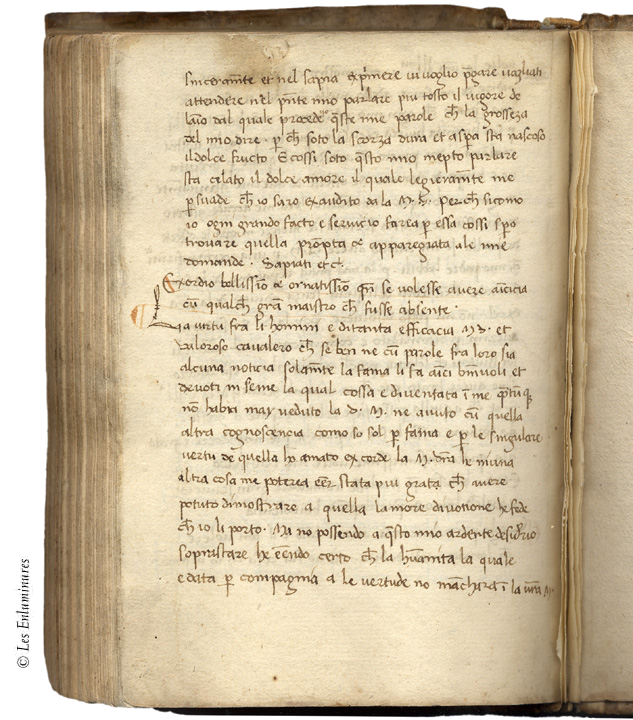 sinceramẽte et nel sapia exp̃mere ui uoglio p̃gare uagliati
attendere nel p̃nte mio parlare piu tosto il uigore de
laĩo dal quale procede q̃ste mie parole ch̃ la grosseza
del mio dire · p̱ ch̃ soto la scorza dura et asp̱a sta nascoso
il dolce fructo E cossi soto q̃sto mio inepto parlare
sta celato il dolce amore il quale legierãmte me
p̱suade ch̃ io saro exaudito da la M. Perch̃ sicomo
io ogni grando facto e seruicio farea p̱ essa cossi spo
trouare quella prõpta & appareghiata ale mie
domande · Sapiati etc̃.
Exordio bellissĩo & ornatissĩo qñ se volesse auere amicicia
cũ qualch̃ grã maistro ch̃ fusse absente ·
La uirtu fra li homini e ditanta efficacia M. et
valoroso caualero ch̃ se ben ne cũ parole fra loro sia
alcuna noticia solamẽte la fama li fa amici beniuoli et
deuoti in seme la qual cossa e diuentata ĩ me
nõ habia may ueduto la v. M. ne auuto cũ quella
altra cognoscencia como so sol p̱ fama e p̱ le singulare
vertu de quella ho amato ex corde la M. vr̃a he niuna
altra cosa me poterea eẽr stata piu grata ch̃ auere
potuto dimostrare a quella lamore diuotione he fede
ch̃ io li porto · Ma no possendo a q̃sto mio ardente desiderio
soprastare he eẽndo certo ch̃ la hũanita la quale
e data p̱ compagnia a le vertude no mãchara ĩ la vr̃a M.
© Les Enluminures